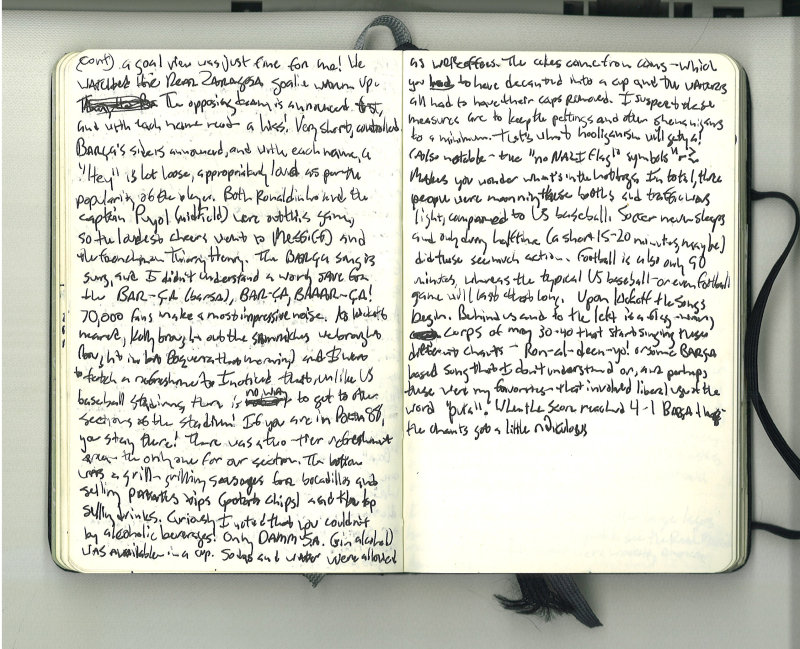 (cont) a goal view was just fine for me! We
watched the Real Zaragosa goalie warm up.
The opposing team is announced first,
and with each name read a hiss! Very short, controlled.
Barça's side is announced, and with each name, a
"Hey" is let loose, appropriately loud as per the
popularity of the player. Both Ronaldinho and the
captain Puyol (midfield) were out this game,
so the loudest cheers went to Messi (F) and
the Frenchman Thierry Henry. The Barça song is
sung, and I didn't understand a word save for
the BAR-ÇA (barsa), BAR-ÇA, BAAAR-ÇA!
70,000 fans make a most impressive noise. As kickoff
neared, Kelly brought out the sandwiches we brought
(bought in la Boqueria that morning) and I went
to fetch a refreshment. I noticed that, unlike US
baseball stadiums, there is no way to get to other
sections of the stadium! If you are in Porta 88,
you stay there! There was a two-tier refreshment
area - the only one for our section. The bottom
was a grill grilling sausages for bocadillos and
selling patatas xips (potato chips) and the top
selling drinks. Curiously I noted that you couldn't
buy alcoholic beverages! Only DAMM SA. (sin alcohol)
was available in a cup. Sodas and water were allowed
as well. The cokes came from cans - which
you had to have decanted into a cup and the waters
all had to have their caps removed. I suspect these
measures are to keep the peltings and other shenanigans
to a minimum. That's what hooliganism will get ya!
(Also notable - the "no NAZI flag" symbols
Makes you wonder what's in the hotdogs. In total, three
people were manning these booths and traffic was
light, compared to US baseball. Soccer never stops
and only during halftime (a short 15-20 minutes, maybe)
did these see much action. Football is also only 90
minutes, whereas the typical US baseball - or even football
game will last twice that long. Upon kickoff the songs
begin. Behind us and to the left is a flag-waving
corps of may 30-40 that start singing these
different chants - Ron-al-deen-yo! or some Barça
based song that I don't understand or, and perhaps
these were my favorites - that involved liberal use of the
word "puta". When the score reached 4-1 Barça
the chants got a little ridiculous